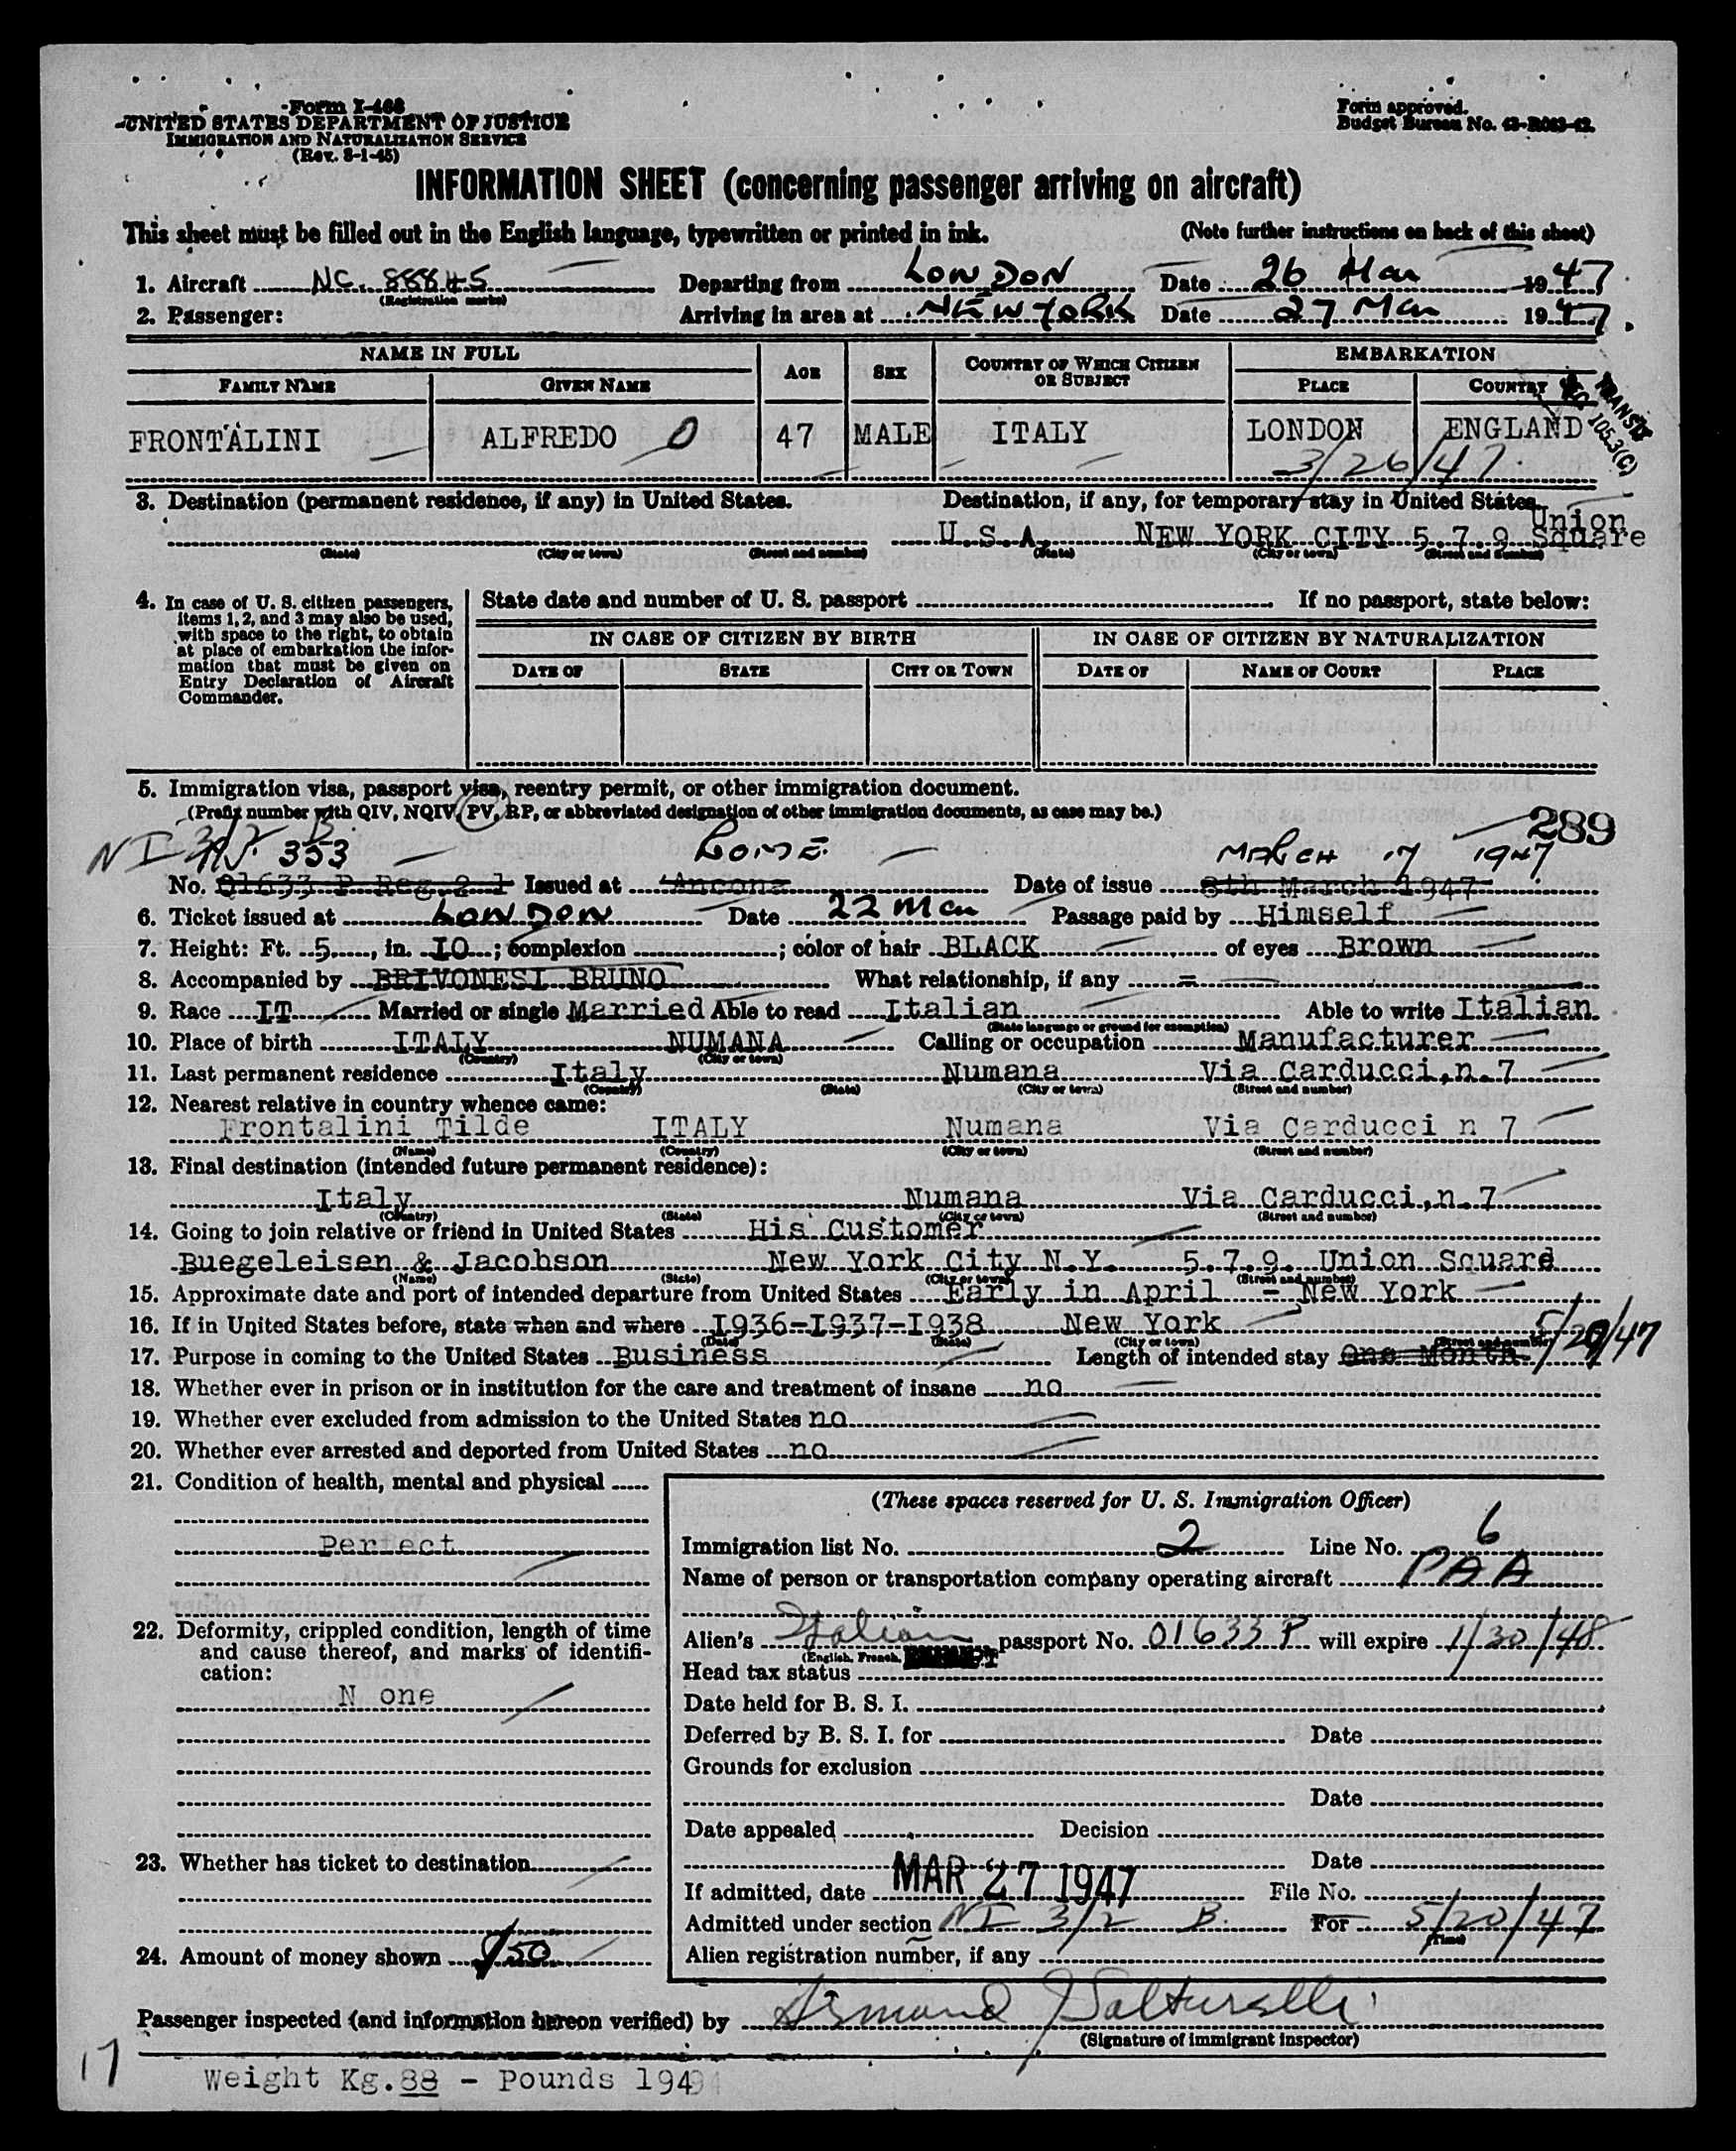 Form I-466
UNITED STATES DEPARTMENT OF JUSTICE
IMMIGRATION AND NATURALIZATION SERVICE
(Rev. 8-1-45)
Form approved.
Budget Bureau No. 43-R083-42.
INFORMATION SHEET (concerning passenger arriving on aircraft)
This sheet must be filled out in the English language, typewritten or printed in ink. (Note further instructions on back of this sheet)
1. Aircraft NC. 88845 Departing from LONDON Date 26 Mar 1947.
(Registration marks)
2. Passenger: Arriving in area at NEW YORK Date 27 Mar 1947.
NAME IN FULL AGE SEX COUNTRY OF WHICH CITIZEN OR SUBJECT EMBARKATION
FAMILY NAME GIVEN NAME PLACE COUNTRY
TRANSIT
105.3(C)
FRONTALINI ALFREDO O 47 MALE ITALY LONDON ENGLAND
3/26/47.
3. Destination (permanent residence, if any) in United States. Destination, if any, for temporary stay in United States.
U.S.A. NEW YORK CITY 5.7.9 Union Square
(State) (City or town) (Street and number) (State) (City or town) (Street and number)
4. In case of U. S. citizen passengers, items 1, 2, and 3 may also be used, with space to the right, to obtain at place of embarkation the information that must be given on Entry Declaration of Aircraft Commander.
State date and number of U. S. passport If no passport, state below:
IN CASE OF CITIZEN BY BIRTH IN CASE OF CITIZEN BY NATURALIZATION
DATE OF STATE CITY OR TOWN DATE OF NAME OF COURT PLACE
5. Immigration visa, passport visa, reentry permit, or other immigration document.
(Prefix number with QIV, NQIV, PV, RP, or abbreviated designation of other immigration documents, as case may be.)
289
NI 3/2 B.
333 ROME MARCH 17 1947
No. 01633 P Reg.2 1 Issued at Ancona Date of issue 8th March 1947
6. Ticket issued at LONDON Date 22 Mar Passage paid by Himself
7. Height: Ft. 5, in. IO; complexion ; color of hair BLACK of eyes Brown
8. Accompanied by BRIVONESI BRUNO What relationship, if any =
9. Race IT Married or single Married Able to read Italian Able to write Italian
(State language or ground for exemption)
10. Place of birth ITALY NUMANA Calling or occupation Manufacturer
(Country) (City or town)
11. Last permanent residence Italy Numana Via Carducci,n.7
(Country) (State) (City or town) (Street and number)
12. Nearest relative in country whence came:
Frontalini Tilde ITALY Numana Via Carducci n 7
(Name) (Country) (City or town) (Street and number)
13. Final destination (intended future permanent residence):
Italy Numana Via Carducci,n.7
(Country) (State) (City or town) (Street and number)
14. Going to join relative or friend in United States His Customer
Buegeleisen & Jacobson New York City N.Y. 5.7.9. Union Square
(Name) (State) (City or town) (Street and number)
15. Approximate date and port of intended departure from United States Early in April - New York
16. If in United States before, state when and where I936-I937-I938 New York
(Date) (State) (City or town) (Street and number)
17. Purpose in coming to the United States Business Length of intended stay One Month 5/20/47
18. Whether ever in prison or in institution for the care and treatment of insane no
19. Whether ever excluded from admission to the United States no
20. Whether ever arrested and deported from United States no
21. Condition of health, mental and physical
Perfect
22. Deformity, crippled condition, length of time and cause thereof, and marks of identification:
N one
23. Whether has ticket to destination
24. Amount of money shown $50
(These spaces reserved for U. S. Immigration Officer)
Immigration list No. 2 Line No. 6
Name of person or transportation company operating aircraft PAA
Alien's Italian passport No. 01633 P will expire 1/30/48
(English, French,
Head tax status
Date held for B. S. I.
Deferred by B. S. I. for Date
Grounds for exclusion
Date
Date appealed Decision
Date
If admitted, date MAR 27 1947 File No.
Admitted under section NI 3/2 B. For 5/20/47
(Time)
Alien registration number, if any
Passenger inspected (and information hereon verified) by Armand J Salturelli
(Signature of immigrant inspector)
17
Weight Kg.88 - Pounds 194